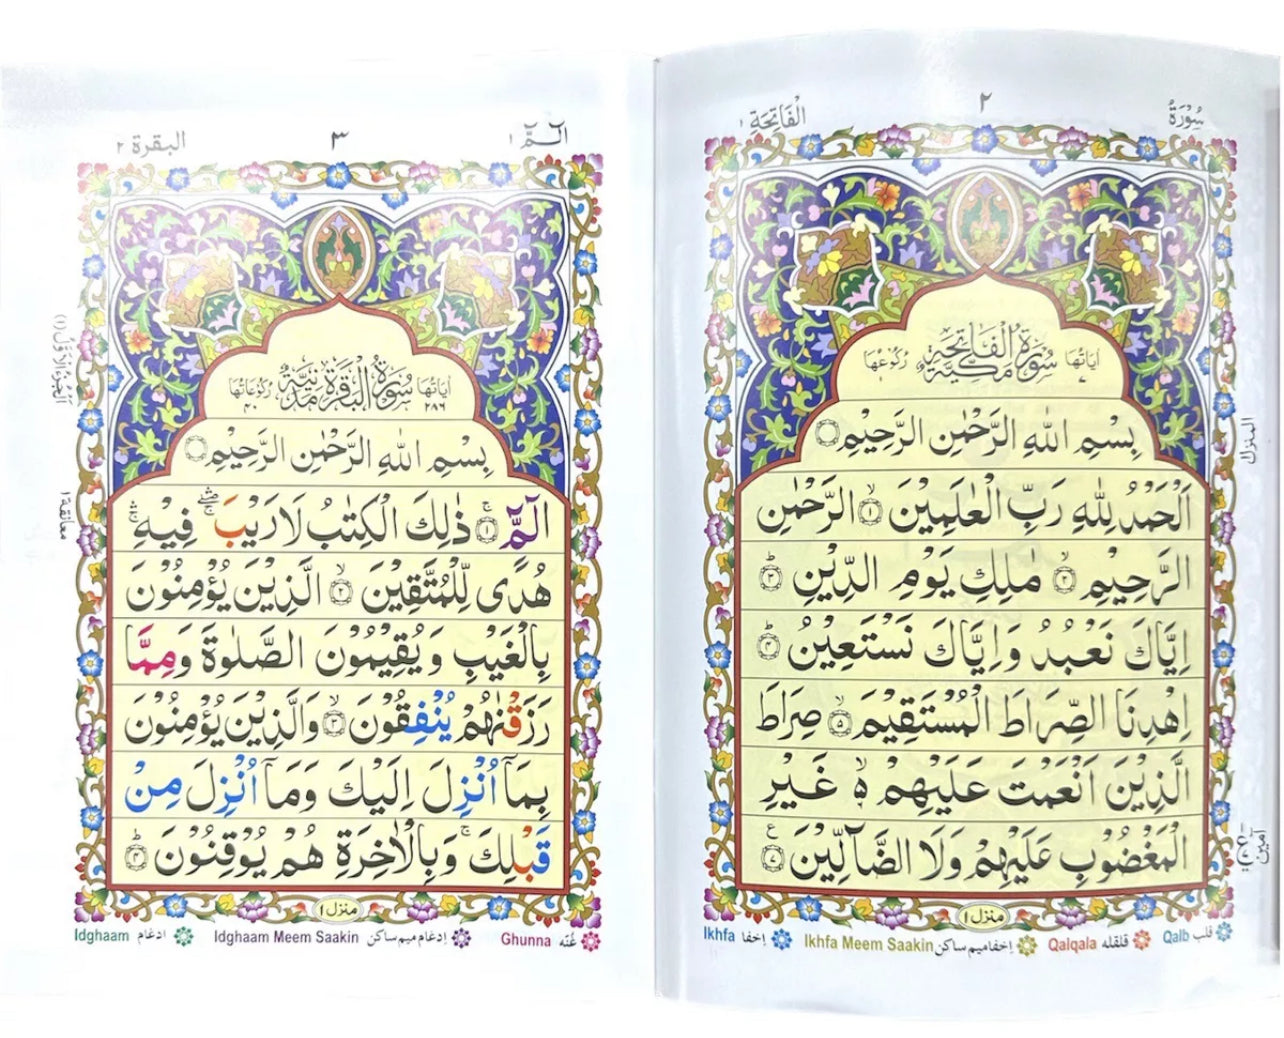 سُوْرَةُ
٢
الْفَاتِحَةِ ١
سُوْرَةُ الْفَاتِحَةِ مَكِّيَّةٌ
اٰيَاتُهَا ٧
رُكُوْعُهَا ١
بِسْمِ اللّٰهِ الرَّحْمٰنِ الرَّحِيْمِ
اَلْحَمْدُ لِلّٰهِ رَبِّ الْعٰلَمِيْنَ ۙ﴿١﴾ الرَّحْمٰنِ
الرَّحِيْمِ ۙ﴿٢﴾ مٰلِكِ يَوْمِ الدِّيْنِ ؕ﴿٣﴾
اِيَّاكَ نَعْبُدُ وَاِيَّاكَ نَسْتَعِيْنُ ؕ﴿٤﴾
اِهْدِنَا الصِّرَاطَ الْمُسْتَقِيْمَ ۙ﴿٥﴾ صِرَاطَ
الَّذِيْنَ اَنْعَمْتَ عَلَيْهِمْ ۙ۬ۦ غَيْرِ
الْمَغْضُوْبِ عَلَيْهِمْ وَلَا الضَّآلِّيْنَ ﴿٧﴾
المنزل
اٰمين
منزل ١
Qalb قلب
Qalqala قلقله
Ikhfa Meem Saakin اِخفا میم ساکن
Ikhfa اِخفا
الٓمّٓ ١
٣
البقرة ٢
سُوْرَةُ الْبَقَرَةِ مَدَنِيَّةٌ
اٰيَاتُهَا ٢٨٦
رُكُوْعَاتُهَا ٤٠
بِسْمِ اللّٰهِ الرَّحْمٰنِ الرَّحِيْمِ
الٓمّٓ ۚ﴿١﴾ ذٰلِكَ الْكِتٰبُ لَا رَيْبَ ۛۖۚ فِيْهِ ۛۚ
هُدًى لِّلْمُتَّقِيْنَ ۙ﴿٢﴾ الَّذِيْنَ يُؤْمِنُوْنَ
بِالْغَيْبِ وَيُقِيْمُوْنَ الصَّلٰوةَ وَمِمَّا
رَزَقْنٰهُمْ يُنْفِقُوْنَ ۙ﴿٣﴾ وَالَّذِيْنَ يُؤْمِنُوْنَ
بِمَآ اُنْزِلَ اِلَيْكَ وَمَآ اُنْزِلَ مِنْ
قَبْلِكَ ۚ وَبِالْاٰخِرَةِ هُمْ يُوْقِنُوْنَ ؕ﴿٤﴾
اَلْجُزْءُ الْاَوَّلُ (١)
معانقة ١
منزل ١
Ghunna غُنّه
Idghaam Meem Saakin اِدغام میم ساکن
Idghaam ادغام